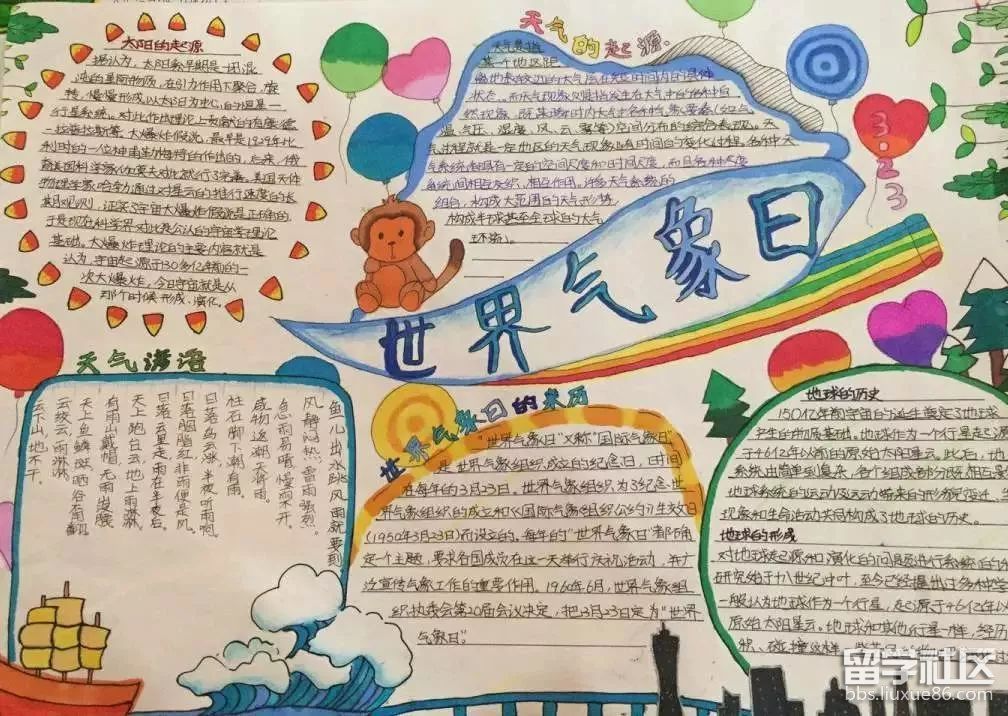 太阳的起源
据认为,太阳系早期是一团混
沌的星际物质,在引力作用下聚合,旋
转,慢慢形成以太阳为中心,自
行星系统。
大爆炸假说,最早是1929年比
利时的一位神甫
美国天体
物理学家哈勃通过对星云的
证实了宇宙大爆炸假说是正确的,
于是现在科学界对比是公认的宇宙学理论
基础。大爆炸理论的主要内容就是
认为,宇宙起源于130多亿年前的一
次大爆炸,今日宇宙就是从
那个时候形成、演化。
天气的起源.
某一个地区距
离地表较近的大气层在短时间内的具体
状态。而天气现象则是指发生在大气中的各种自
然现象,
温、气压、湿度、风、云、雾等)空间分布的综合表现。天
气过程就是一定地区的天气现象随时间的变化过程。各种天
气系统都具有一定的空间尺度和时间尺度,而且各种尺度
系统间相互交织、相互作用。许多天气系统的
组合,构成大范围的天气形势,
构成半球甚至全球的大气
环流)。
3.23
世界气象日
天气谚语
鱼儿出水跳,风雨就要到
风静闷热,雷雨强烈。
急雨易晴,慢雨不开。
咸物返潮天将雨。
柱石脚下潮有雨。
日落乌云涨,半夜听雨响。
日落胭脂红,非雨便是风。
日落云里走,雨在半夜后。
天上跑白云,地上雨淋
有雨山戴帽,无雨
天上鱼鳞斑,晒谷不用翻
云绞云,雨淋淋。
云下山,地不干。
世界气象日的来历
“世界气象日”又称“国际气象日”,
是世界气象组织成立的纪念日,时间
在每年的3月23日。世界气象组织为了纪念世
界气象组织的成立和《国际气象组织公约》生效日
(1950年3月23日)而设立的。每年的“世界气象日”都确
定一个主题,要求各国成员在这一天举行庆祝活动,并广
泛宣传气象工作的重要作用。1960年6月,世界气象组
织执委会第20届会议决定,把3月23日定为“世界
气象日”。
地球的历史
150亿年前宇宙的诞生奠定了地球
产生的物质基础。地球作为一个行星起源
于46亿年以前的原始太阳星云。此后,地
系统由简单到复杂,各个组成部分既相互
地球系统的运动及运动带来的形态变迁、
现象和生命活动共同构成了地球的历史。
地球的形成
对地球起源和演化的问题进行系统的
研究始于十八世纪中叶,至今已经提出过多种
一般认为地球作为一个行星,起源于46亿年
原始太阳星云。地球和其他行星一样,经历
积、碰撞
留学社区
bbs.liuxue86.com